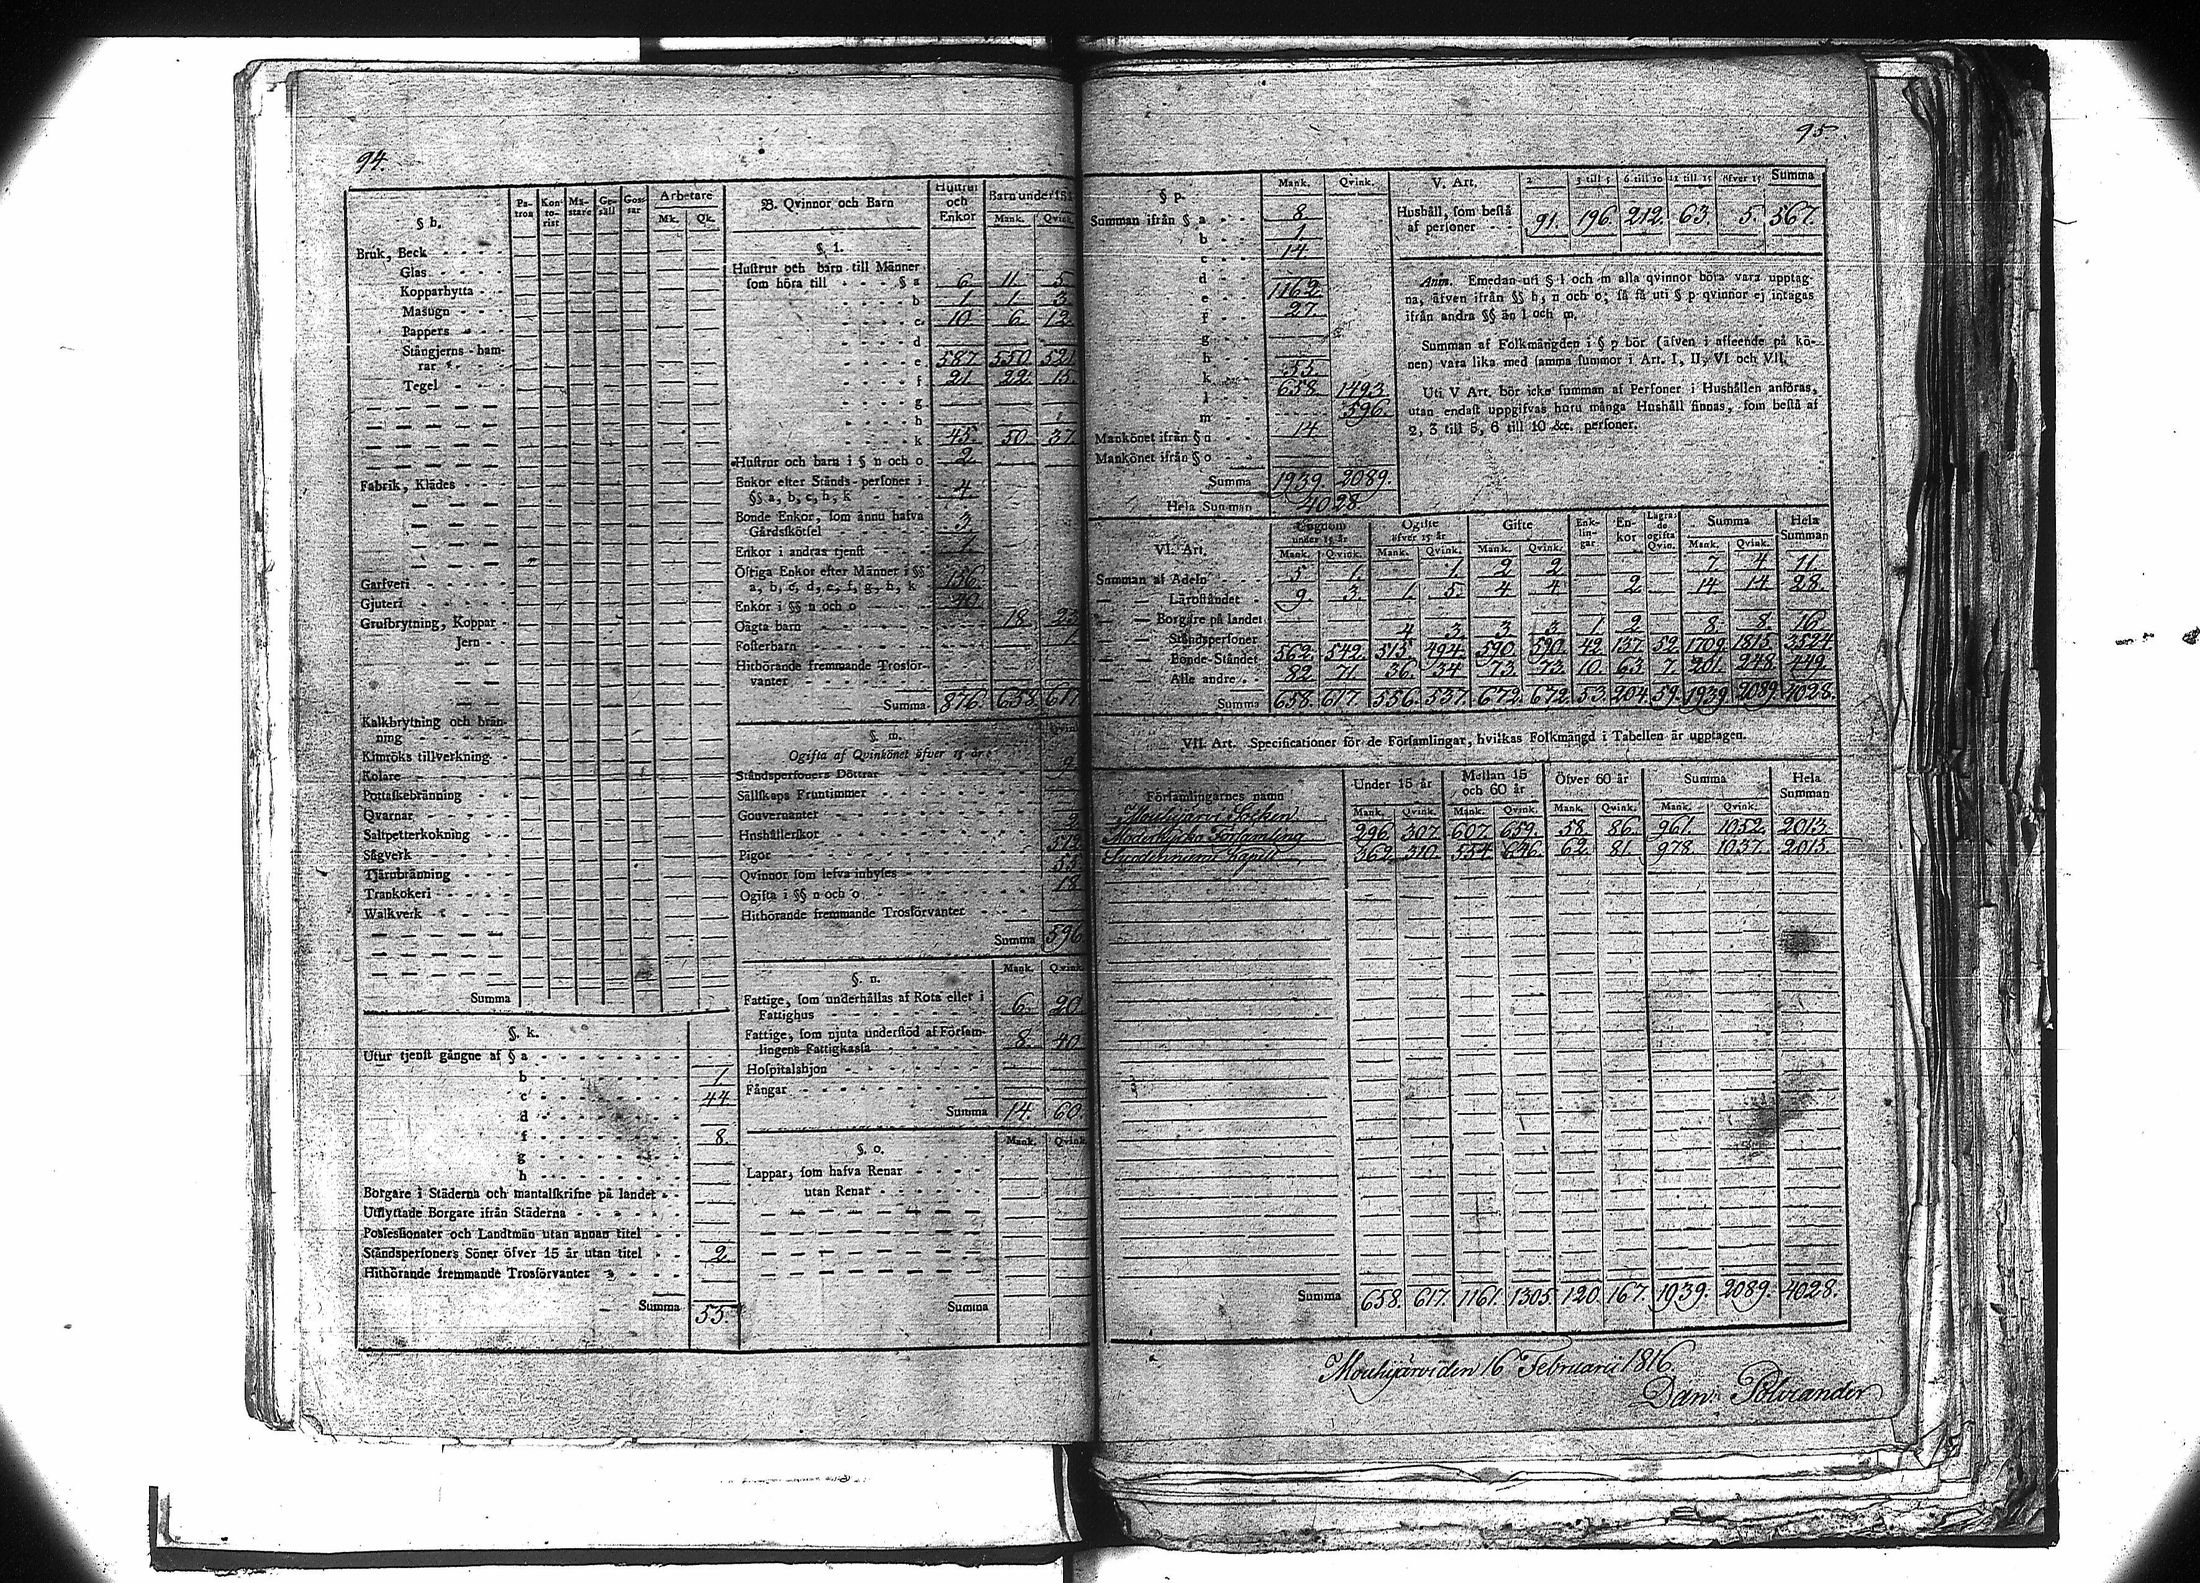 94.
§ h. Pa-tron Kon-to-rist Mä-stare Ge-säll Gos-sar Arbetare Mk. Qk.
Bruk, Beck
Glas
Kopparhytta
Masugn
Pappers
Stångjerns-ham-
rar
Tegel
Fabrik, Klädes
Garfveri
Gjuteri
Grufbrytning, Koppar
Jern
Kalkbrytning och brän-
ning
Kimröks tillverkning
Kolare
Pottaskebränning
Qvarnar
Saltpetterkokning
Sågverk
Tjärubränning
Trankokeri
Walkverk
Summa
§. k.
Utur tjenst gångne af § a
b 1
c 44
d
f 8.
g
h
Borgare i Städerna och mantalskrifne på landet
Utflyttade Borgare ifrån Städerna
Possessionater och Landtmän utan annan titel
Ståndspersoners Söner öfver 15 år utan titel 2
Hithörande fremmande Trosförvanter
Summa 55.
B. Qvinnor och Barn Hustrur och Enkor Barn under Mank. Qvink.
§ 1.
Hustrur och barn till Männer
som höra till § a 6. 11. 5.
b 1. 1. 3.
c 10. 6. 12.
d
e 587. 550. 521.
f 21. 22. 15.
g
h
k 45. 50. 37.
Hustrur och barn i § n och o 2.
Enkor efter Stånds-personer i
§§ a, b, c, h, k 4.
Bonde Enkor, som ännu hafva
Gårdsskötsel 3.
Enkor i andras tjenst 1.
Öfriga Enkor efter Männer i §§
a, b, c, d, e, f, g, h, k 156.
Enkor i §§ n och o 40.
Oägta barn 18. 23.
Fosterbarn 1.
Hithörande fremmande Trosför-
vanter
Summa 876. 658. 617.
§. m.
Ogifta af Qvinkönet öfver 15 år
Ståndspersoners Döttrar 9
Sällskaps Fruntimmer
Gouvernanter
Hushållerskor 2
Pigor 512
Qvinnor som lefva inhyses 55
Ogifta i §§ n och o 18
Hithörande fremmande Trosförvanter
Summa 596
§. n. Mank. Qvink.
Fattige, som underhållas af Rota eller i
Fattighus 6. 20
Fattige, som njuta understöd af Försam-
lingens Fattigkassa 8. 40
Hospitalshjon
Fångar
Summa 14. 60
§. o. Mank. Qvink.
Lappar, som hafva Renar
utan Renar
Summa
95.
§ p. Mank. Qvink.
Summan ifrån § a 8.
b 1
c 14.
d
e 1162.
f 27.
g
h
k 55.
l 658. 1493.
m 596.
Mankönet ifrån § n 14.
Mankönet ifrån § o
Summa 1939. 2089.
Hela Summan 4028.
V. Art. 2 3 till 5 6 till 10 11 till 15 öfver 15 Summa
Hushåll, som bestå
af personer 91. 196. 212. 63. 5. 567.
Anm. Emedan uti § l och m alla qvinnor böra vara upptag-
na, äfven ifrån §§ h, n och o; så få uti § p qvinnor ej intagas
ifrån andra §§ än l och m.
Summan af Folkmängden i § p bör (äfven i afseende på kö-
nen) vara lika med samma summor i Art. I, II, VI och VII.
Uti V Art. bör icke summan af Personer i Hushållen anföras,
utan endast uppgifvas huru många Hushåll finnas, som bestå af
2, 3 till 5, 6 till 10 &c. personer.
VI. Art. Ungdom under 15 år Ogifte öfver 15 år Gifte Enk-lingar En-kor Lägra-de ogifta Qvin. Summa Hela Summan
Mank. Qvink. Mank. Qvink. Mank. Qvink. Mank. Qvink.
Summan af Adeln 5 1. 1 2 2 7 4 11
Läroståndet 9. 3. 1. 5. 4 4 2. 14 14 28.
Borgare på landet
Ståndspersoner 4 3. 3 3 1 2 8. 8. 16
Bonde-Ståndet 562. 542. 515. 494. 590. 590. 42. 137. 52. 1709. 1815. 3524
Alle andre 82. 71. 36. 34 73. 73. 10. 63. 7. 201. 248. 449.
Summa 658. 617. 556. 537. 672. 672. 53. 204. 59. 1939. 2089. 4028.
VII. Art. Specificationer för de Församlingar, hvilkas Folkmängd i Tabellen är upptagen.
Församlingarnes namn Under 15 år Mellan 15 och 60 år Öfver 60 år Summa Hela Summan
Mank. Qvink. Mank. Qvink. Mank. Qvink. Mank. Qvink.
Mouhijärvi Socken
Moderkyrko Församling 296. 307. 607. 659. 58. 86. 961. 1052. 2013.
Suodenniemi Kapell 362. 310. 554. 646. 62. 81. 978. 1037. 2015.
Summa 658. 617. 1161. 1305. 120. 167. 1939. 2089. 4028.
Mouhijärvi den 16 Februarii 1816.
Dan. Polviander